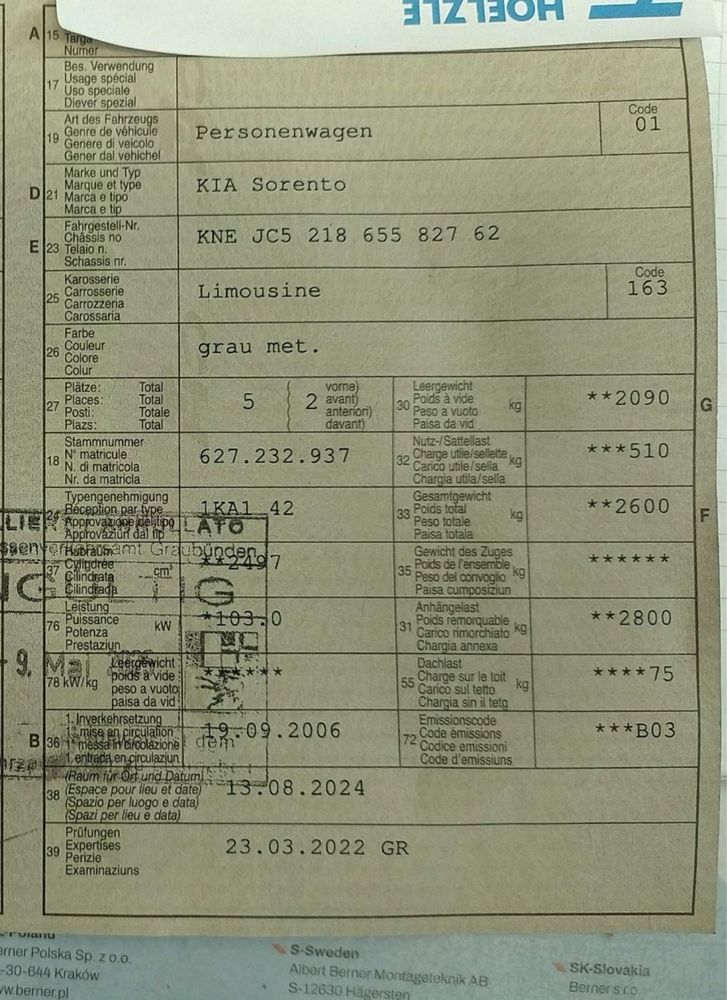 HOELZLE
A
15
Targa
Numer
17
Bes. Verwendung
Usage spécial
Uso speciale
Diever spezial
19
Art des Fahrzeugs
Genre de véhicule
Genere di veicolo
Gener dal vehichel
Personenwagen
Code
01
D
21
Marke und Typ
Marque et type
Marca e tipo
Marca e tip
KIA Sorento
E
23
Fahrgestell-Nr.
Châssis no
Telaio n.
Schassis nr.
KNE JC5 218 655 827 62
25
Karosserie
Carrosserie
Carrozzeria
Carossaria
Limousine
Code
163
26
Farbe
Couleur
Colore
Colur
grau met.
27
Plätze: Total
Places: Total
Posti: Totale
Plazs: Total
5
( 2
vorne)
avant)
anteriori)
davant)
30
Leergewicht
Poids à vide
Peso a vuoto
Paisa da vid
kg
**2090
G
18
Stammnummer
N° matricule
N. di matricola
Nr. da matricla
627.232.937
32
Nutz-/Sattellast
Charge utile/sellette
Carico utile/sella
Chargia utila/sella
kg
***510
24
Typengenehmigung
Réception par type
Approvazione del tipo
Approvaziun dal tip
1KA1 42
33
Gesamtgewicht
Poids total
Peso totale
Paisa totala
kg
**2600
F
37
Hubraum
Cylindrée
Cilindrata
Cilindrada
cm³
**2497
35
Gewicht des Zuges
Poids de l'ensemble
Peso del convoglio
Paisa cumposiziun
kg
******
76
Leistung
Puissance
Potenza
Prestaziun
kW
*103.0
31
Anhängelast
Poids remorquable
Carico rimorchiato
Chargia annexa
kg
**2800
78 kW/kg
Leergewicht
poids à vide
peso a vuoto
paisa da vid
******
55
Dachlast
Charge sur le toit
Carico sul tetto
Chargia sin il tetg
kg
****75
B
36
1. Inverkehrsetzung
1re mise en circulation
1a messa in circolazione
1. entrada en circulaziun
19.09.2006
72
Emissionscode
Code émissions
Codice emissioni
Code d'emissiuns
***B03
38
(Raum für Ort und Datum)
(Espace pour lieu et date)
(Spazio per luogo e data)
(Spazi per lieu e data)
13.08.2024
39
Prüfungen
Expertises
Perizie
Examinaziuns
23.03.2022 GR
ANNULLATO
ssenverkehrsamt Graubünden
9. Mai
dem
L-Poland
erner Polska Sp. z o.o.
-30-644 Kraków
ww.berner.pl
S-Sweden
Albert Berner Montageteknik AB
S-12630 Hägersten
SK-Slovakia
Berner s.r.o.